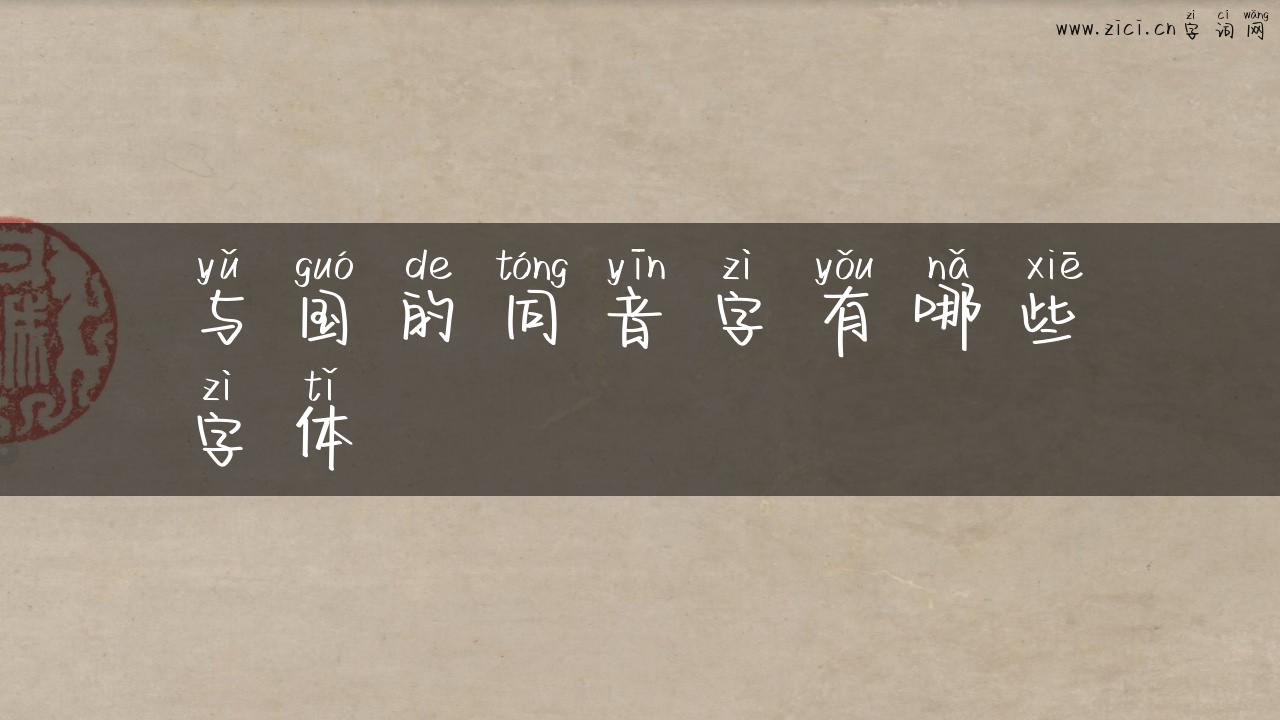 zì cí wǎng
www.zici.cn 字词网
yǔ guó de tóng yīn zì yǒu nǎ xiē
与国的同音字有哪些
zì tǐ
字体